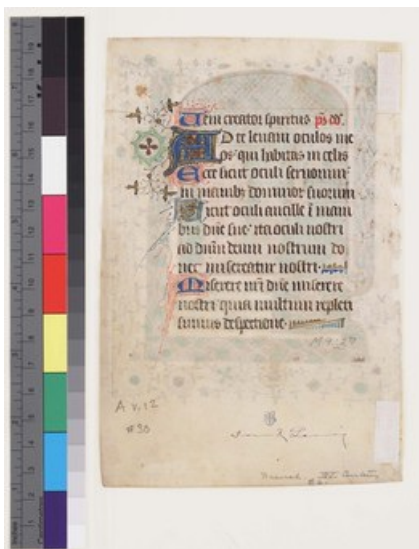 Veni creator spiritus ps̄ eds̄.
AD te levavi oculos me
os· qui habitas in celis
Ecce sicut oculi servorum·
in manibȝ dominor̄ suorum
Sicut oculi ancille ī mani
bus dn̄e sue· ita oculi nostri
ad dn̄m deum nostrum do
nec misereatur nostri·
Miserere nr̄i dn̄e miserere
nostri· quia multum repleti
sumus despectione·
A v. 12
#30